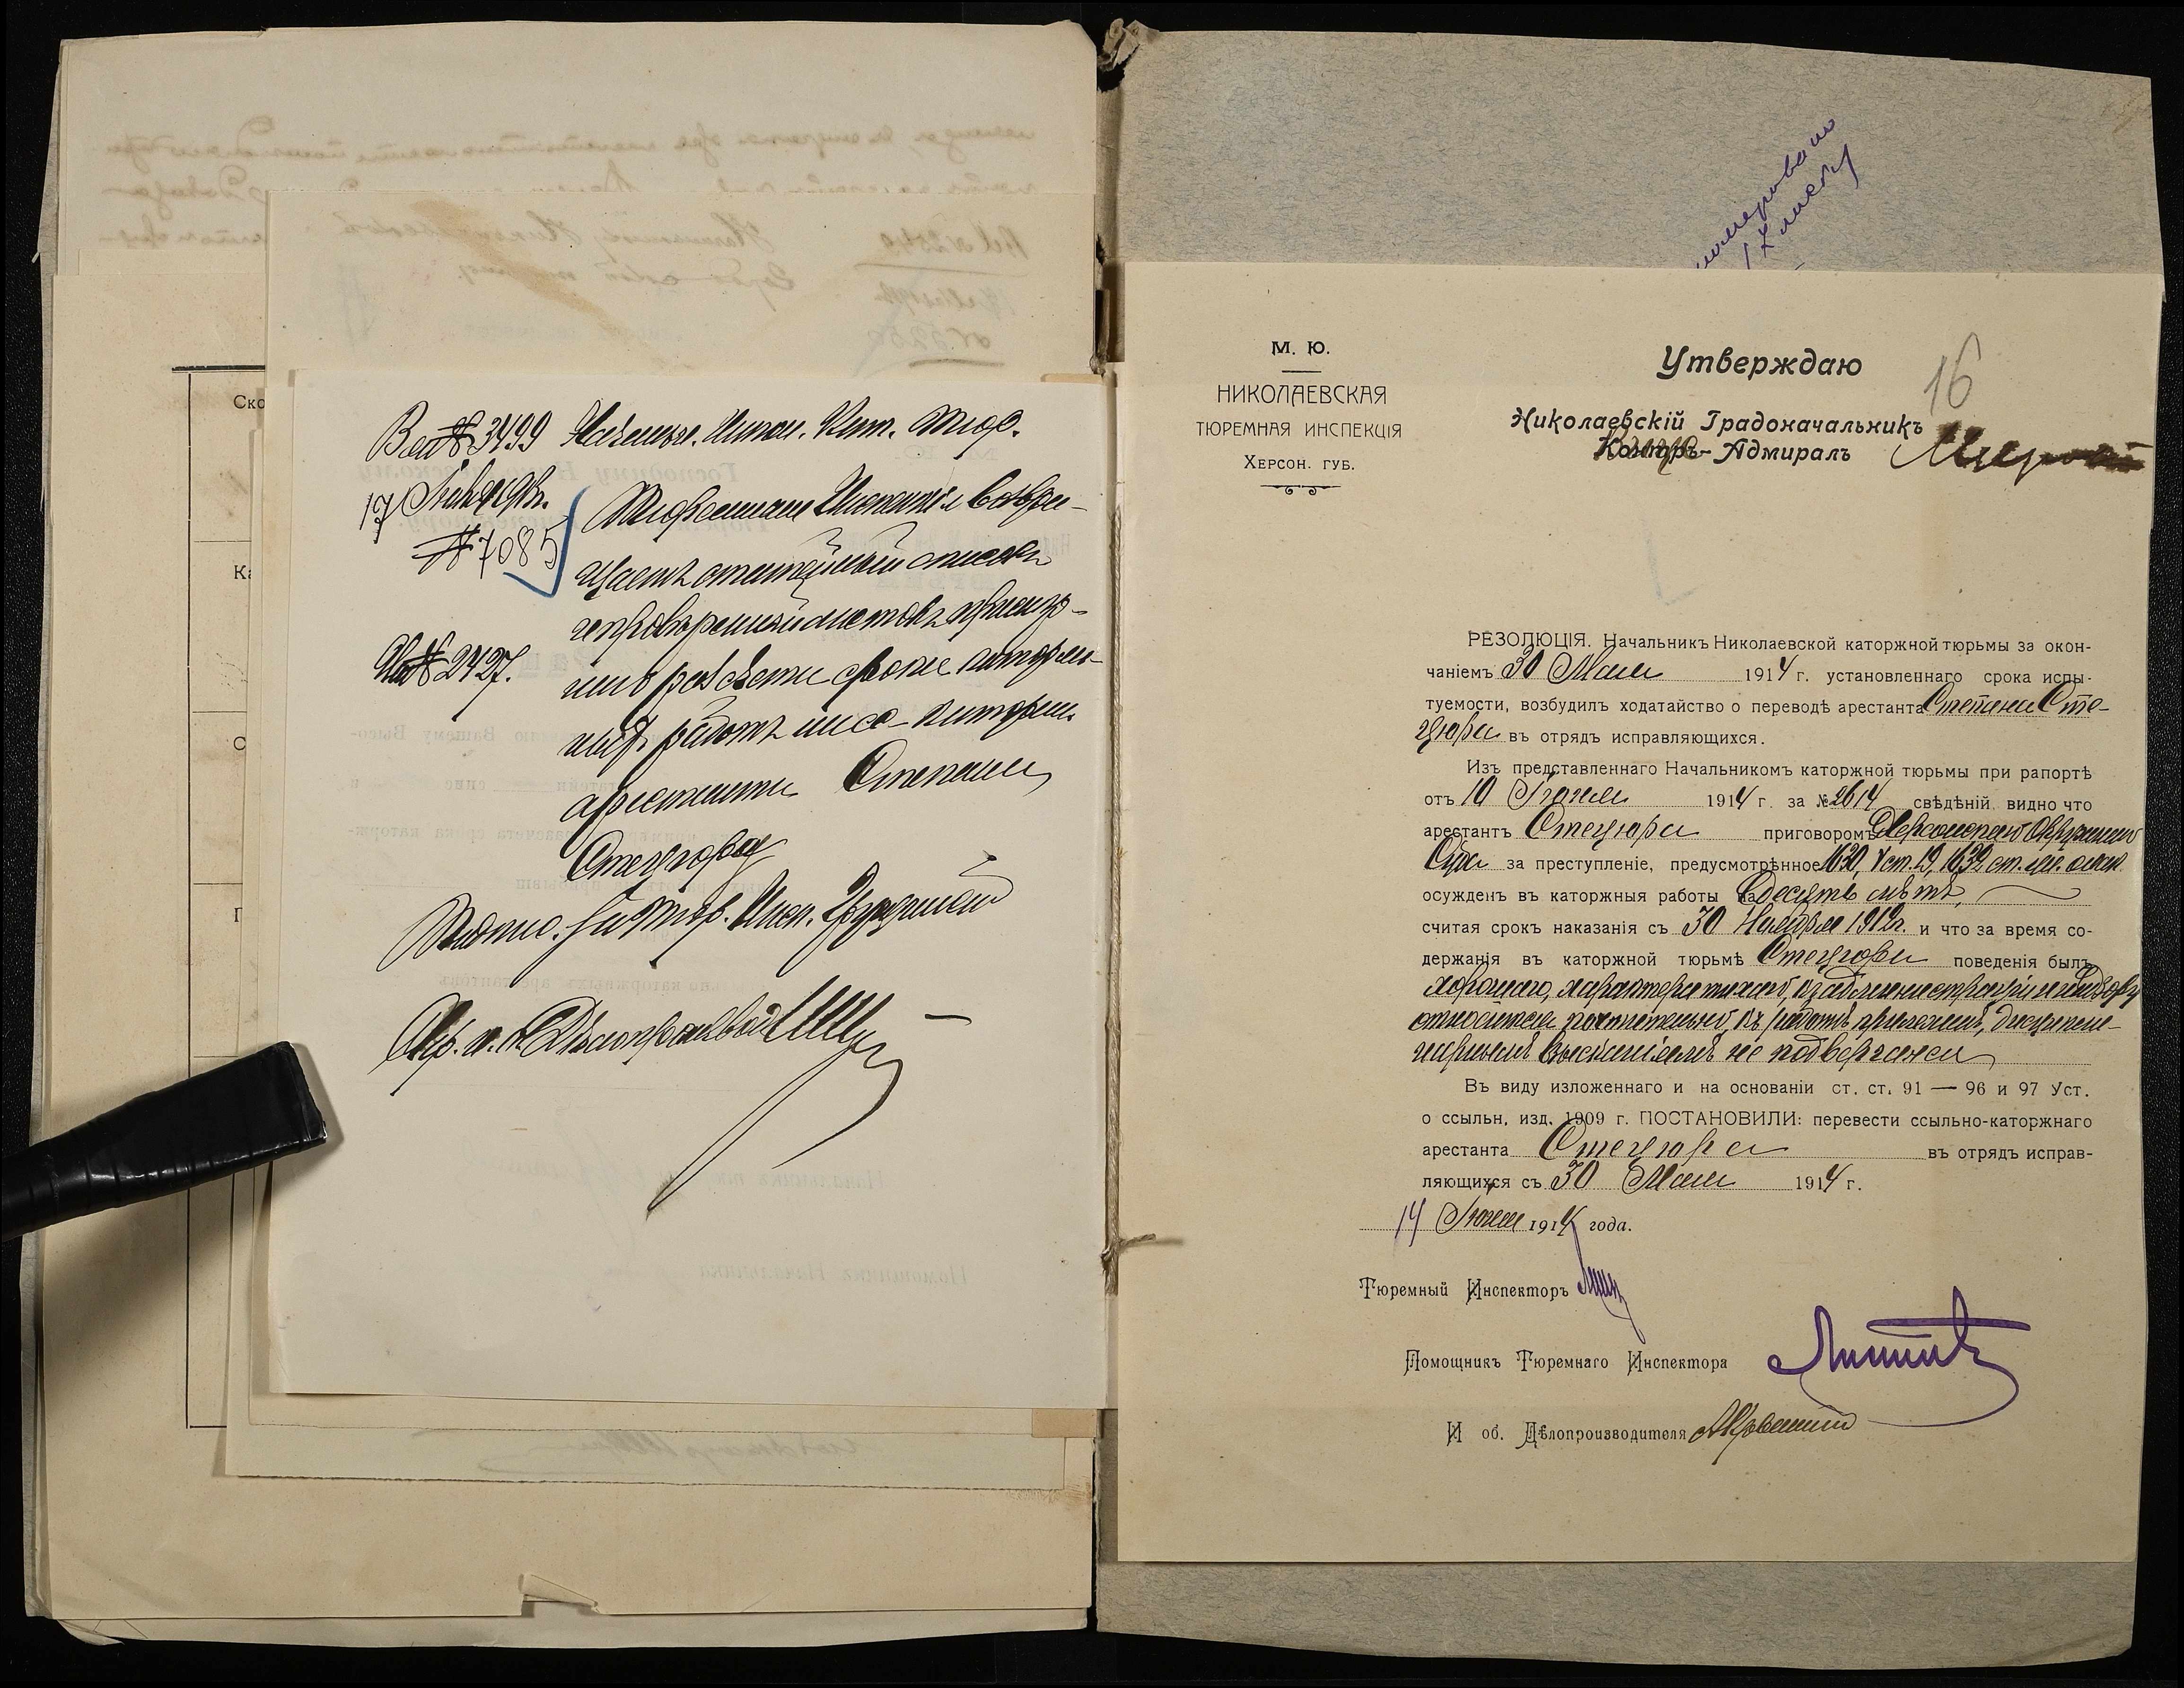 Ско
Ка
С
Г
Вх № 3499
17
№ 7085
Исх № 2427.
Начальн. Никол. Кат. тюр.
Тюремная Инспекція возвра-
щаетъ статейный списокъ
и провѣренный листокъ
разсчета срока каторж-
ныхъ работъ ссс-каторжн.
арестанта Степана
Стецюры
Подпис. За Тюр. Инсп.
М. Ю.
НИКОЛАЕВСКАЯ
ТЮРЕМНАЯ ИНСПЕКЦІЯ
ХЕРСОН. ГУБ.
16
Утверждаю
Николаевскій Градоначальникъ
Контръ-Адмиралъ
РЕЗОЛЮЦІЯ. Начальникъ Николаевской каторжной тюрьмы за окон-
чаніемъ 30 Мая 1914 г. установленнаго срока испы-
туемости, возбудилъ ходатайство о переводѣ арестанта Степана Сте-
цюры въ отрядъ исправляющихся.
Изъ представленнаго Начальникомъ каторжной тюрьмы при рапортѣ
отъ 10 Іюня 1914 г. за № 2614 свѣдѣній видно что
арестантъ Стецюра приговоромъ Херсонскаго Окружнаго
Суда за преступленіе, предусмотрѣнное 1630, 1632 ст. ул. о нак.
осужденъ въ каторжныя работы на десять лѣтъ,
считая срокъ наказанія съ 30 Ноября 1912 г. и что за время со-
держанія въ каторжной тюрьмѣ Стецюра поведенія былъ
хорошаго, характера тихаго, къ администраціи и надзору
относится почтительно, къ работѣ прилеженъ, дисципли-
нарнымъ взысканіямъ не подвергался
Въ виду изложеннаго и на основаніи ст. ст. 91 — 96 и 97 Уст.
о ссыльн. изд. 1909 г. ПОСТАНОВИЛИ: перевести ссыльно-каторжнаго
арестанта Стецюра въ отрядъ исправ-
ляющихся съ 30 Мая 1914 г.
14 Іюня 1914 года.
Тюремный Инспекторъ
Помощникъ Тюремнаго Инспектора
И об. Дѣлопроизводителя